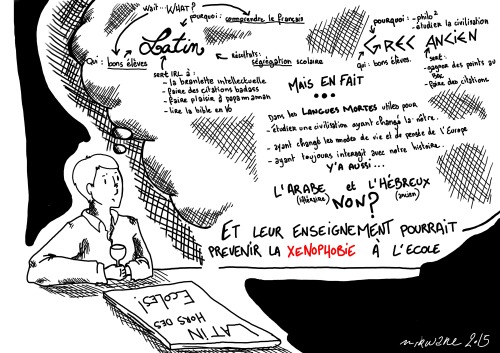 wait... WHAT?
pourquoi : comprendre le français
Latin
Qui : bons élèves
résultats :
ségrégation scolaire
sert IRL à :
- la branlette intellectuelle
- faire des citations badass
- faire plaisir à papa maman
- lire la bible en VO
pourquoi : - philo²
- étudier la civilisation
GREC ANCIEN
qui : bons élèves.
sert :
- gagner des points au
BAC
- faire des citations.
MAIS EN FAIT
...
Dans les LANGUES MORTES utiles pour
- étudier une civilisation ayant changé la nôtre.
- ayant changé les modes de vie et de pensée de l'Europe
- ayant toujours interagit avec notre histoire.
Y'A AUSSI...
L'ARABE et L'HÉBREUX
(littéraire) (ancien)
NON?
ET LEUR ENSEIGNEMENT POURRAIT
PREVENIR LA XENOPHOBIE À L'ECOLE
LATIN
HORS DES
ECOLES!
mirwane 2015